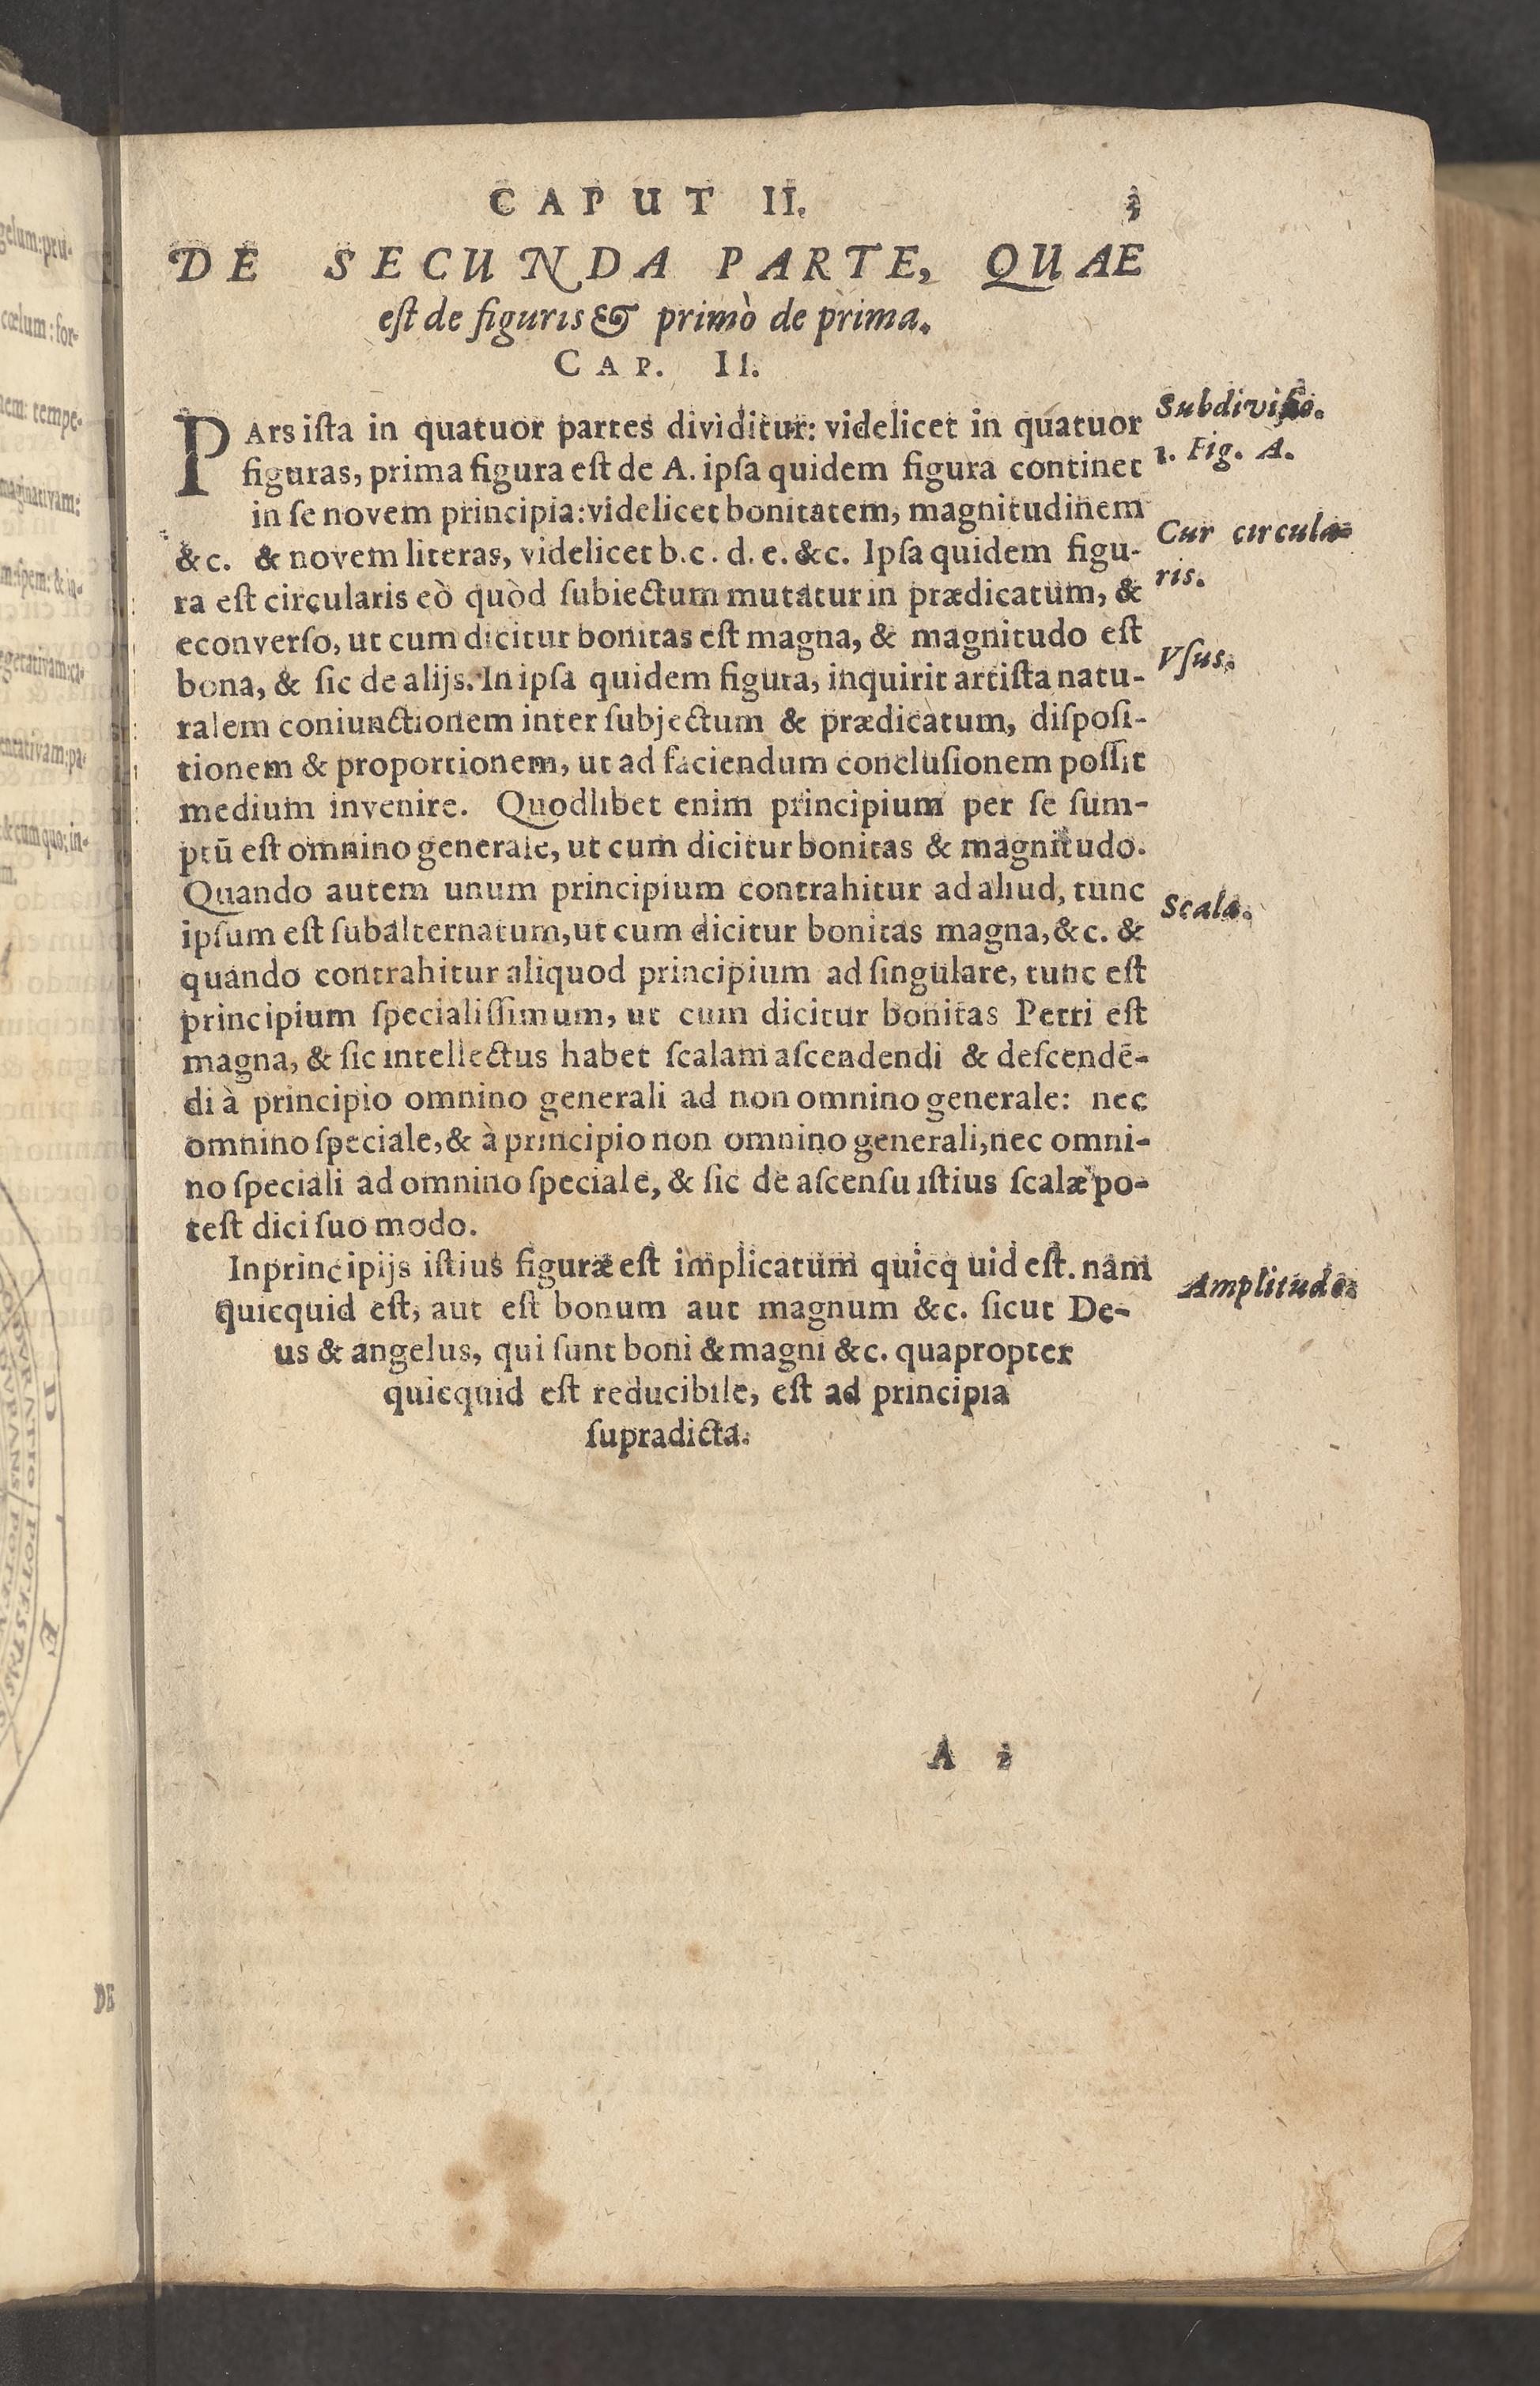 CAPUT II.
DE SECUNDA PARTE, QUAE
est de figuris & primò de prima.
CAP. II.
PArs ista in quatuor partes dividitur: videlicet in quatuor
Subdivisio.
figuras, prima figura est de A. ipsa quidem figura continet
1. Fig. A.
in se novem principia: videlicet bonitatem, magnitudinem
&c. & novem literas, videlicet b. c. d. e. &c. Ipsa quidem figu-
Cur circula-
ra est circularis eò quòd subiectum mutatur in prædicatum, &
ris.
econverso, ut cum dicitur bonitas est magna, & magnitudo est
bona, & sic de alijs. In ipsa quidem figura, inquirit artista natu-
Vsus.
ralem coniunctionem inter subjectum & prædicatum, disposi-
tionem & proportionem, ut ad faciendum conclusionem possit
medium invenire. Quodlibet enim principium per se sum-
ptū est omnino generale, ut cum dicitur bonitas & magnitudo.
Quando autem unum principium contrahitur ad aliud, tunc
Scala.
ipsum est subalternatum, ut cum dicitur bonitas magna, &c. &
quando contrahitur aliquod principium ad singulare, tunc est
principium specialissimum, ut cum dicitur bonitas Petri est
magna, & sic intellectus habet scalam ascendendi & descendē-
di à principio omnino generali ad non omnino generale: nec
omnino speciale, & à principio non omnino generali, nec omni-
no speciali ad omnino speciale, & sic de ascensu istius scalæ po-
test dici suo modo.
In principijs istius figuræ est implicatum quicq uid est. nam
Amplitudo.
quicquid est, aut est bonum aut magnum &c. sicut De-
us & angelus, qui sunt boni & magni &c. quapropter
quicquid est reducibile, est ad principia
supradicta.
A 2
DE